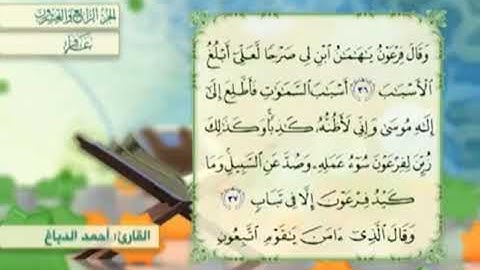 الجزء الرابع والعشرون
غافر
وَقَالَ فِرْعَوْنُ يَٰهَٰمَٰنُ ٱبْنِ لِى صَرْحًا لَّعَلِّىٓ أَبْلُغُ
ٱلْأَسْبَٰبَ ٣٦ أَسْبَٰبَ ٱلسَّمَٰوَٰتِ فَأَطَّلِعَ إِلَىٰٓ
إِلَٰهِ مُوسَىٰ وَإِنِّى لَأَظُنُّهُۥ كَٰذِبًا وَكَذَٰلِكَ
زُيِّنَ لِفِرْعَوْنَ سُوٓءُ عَمَلِهِۦ وَصُدَّ عَنِ ٱلسَّبِيلِ وَمَا
كَيْدُ فِرْعَوْنَ إِلَّا فِى تَبَابٍ ٣٧
وَقَالَ ٱلَّذِىٓ ءَامَنَ يَٰقَوْمِ ٱتَّبِعُونِ
القارئ: أحمد الدباغ